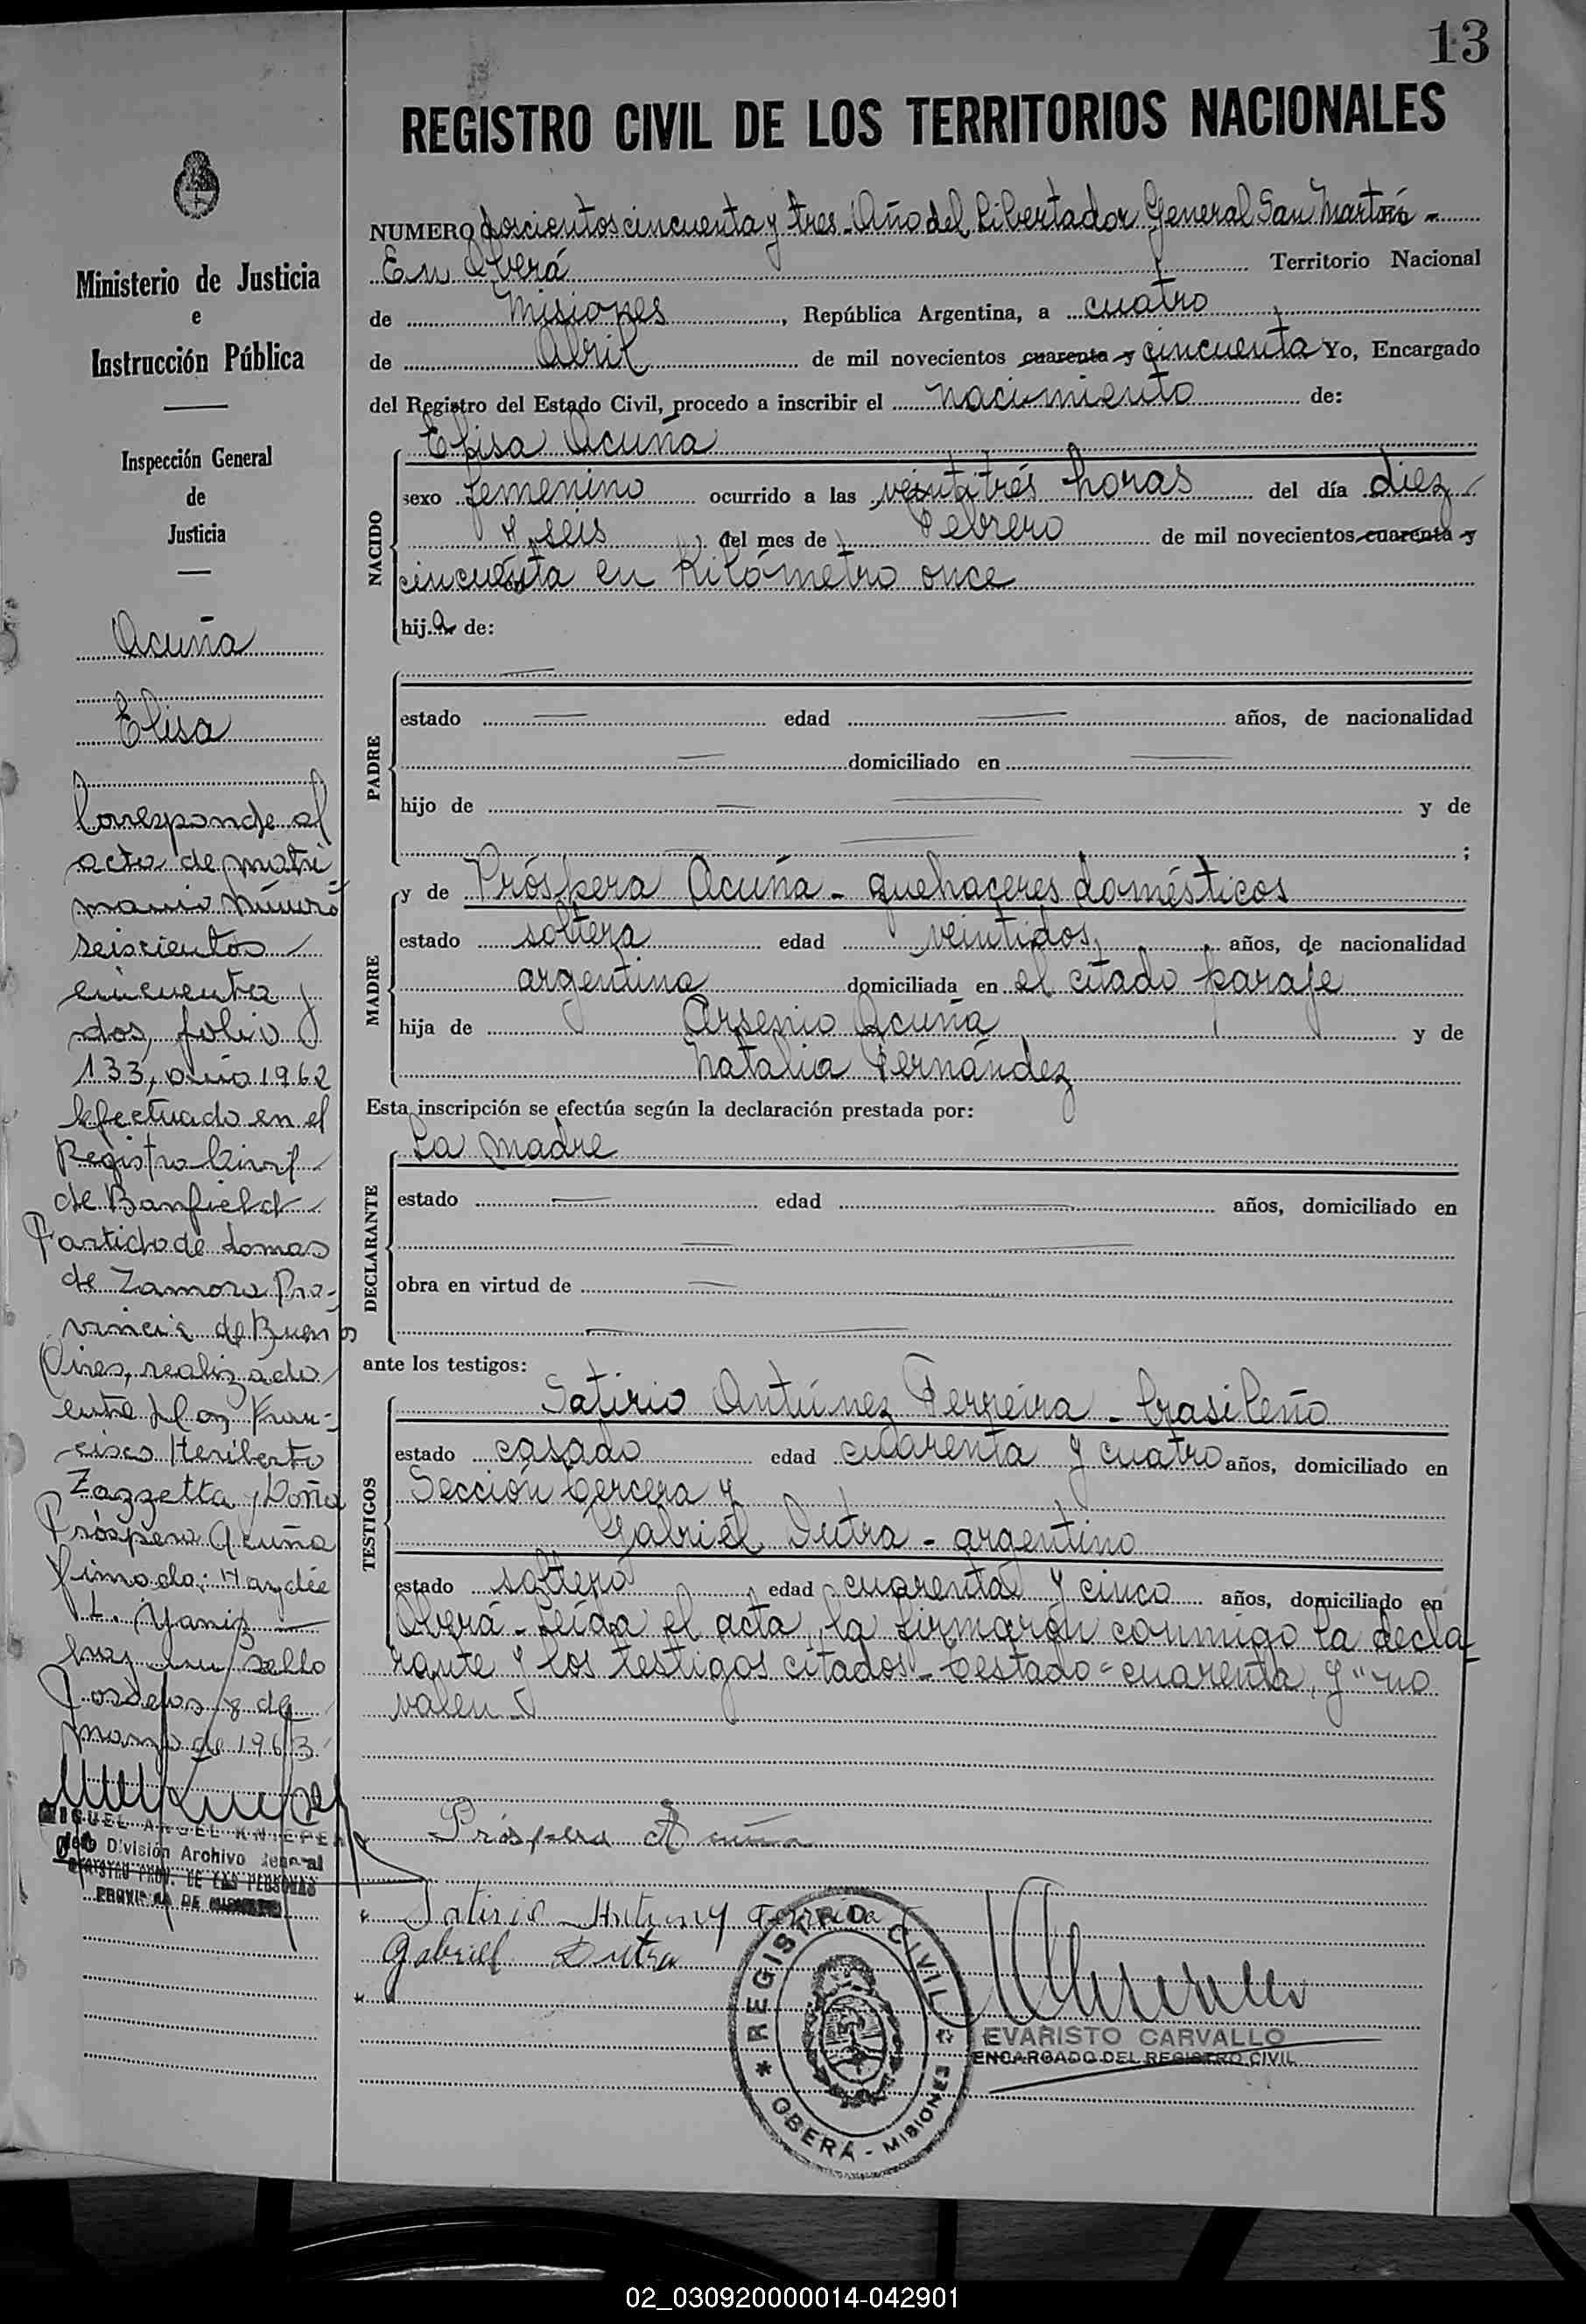 13
REGISTRO CIVIL DE LOS TERRITORIOS NACIONALES
NUMERO doscientos cincuenta y tres - Año del Libertador General San Martín -
En Oberá Territorio Nacional
de Misiones, República Argentina, a cuatro
de Abril de mil novecientos cuarenta y cincuenta Yo, Encargado
del Registro del Estado Civil, procedo a inscribir el nacimiento de:
NACIDO
Elisa Acuña
sexo femenino ocurrido a las veintitrés horas del día diez
y seis del mes de Febrero de mil novecientos cuarenta y
cincuenta en Kilómetro once
hija de:
PADRE
estado edad años, de nacionalidad
domiciliado en
hijo de y de
;
MADRE
y de Próspera Acuña - quehaceres domésticos
estado soltera edad veintidos años, de nacionalidad
argentina domiciliada en el citado paraje
hija de Arsenio Acuña y de
Natalia Fernández
Esta inscripción se efectúa según la declaración prestada por:
DECLARANTE
La madre
estado edad años, domiciliado en
obra en virtud de
ante los testigos:
TESTIGOS
Satirio Antúnez Ferreira - brasileño
estado casado edad cuarenta y cuatro años, domiciliado en
Sección tercera y
Gabriel Dutra - argentino
estado soltero edad cuarenta y cinco años, domiciliado en
Oberá - Leída el acta, la firmarón conmigo la decla-
rante y los testigos citados - Testado = cuarenta, y " no
valen -
Próspera Acuña
Satirio Antuny Ferreira
Gabriel Dutra
REGISTRO CIVIL
OBERÁ - MISIONES
EVARISTO CARVALLO
ENCARGADO DEL REGISTRO CIVIL
Ministerio de Justicia
e
Instrucción Pública
Inspección General
de
Justicia
Acuña
Elisa
Corresponde al
acta de matri-
monio número
seiscientos
cincuenta y
dos, folio
133, año 1962
efectuado en el
Registro Civil
de Banfield
Partido de Lomas
de Zamora Pro-
vincia de Buenos
Aires, realizado
entre Don Fran-
cisco Heriberto
Zazzetta y Doña
Próspera Acuña
firmado: Haydée
L. Yaniz
hay un sello
Posadas 8 de
marzo de 1963
MIGUEL ANGEL KNIEPER
Jefe División Archivo General
REGISTRO PROV. DE LAS PERSONAS
PROVINCIA DE MISIONES
02_030920000014-042901